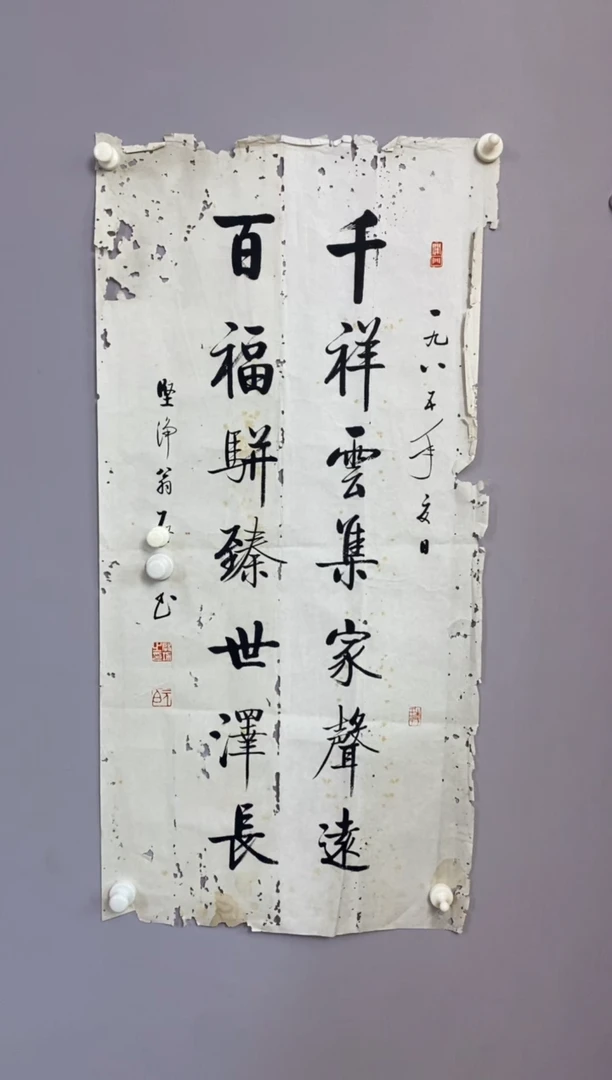 一九八五年夏日
千祥雲集家聲遠
百福駢臻世澤長
堅淨翁